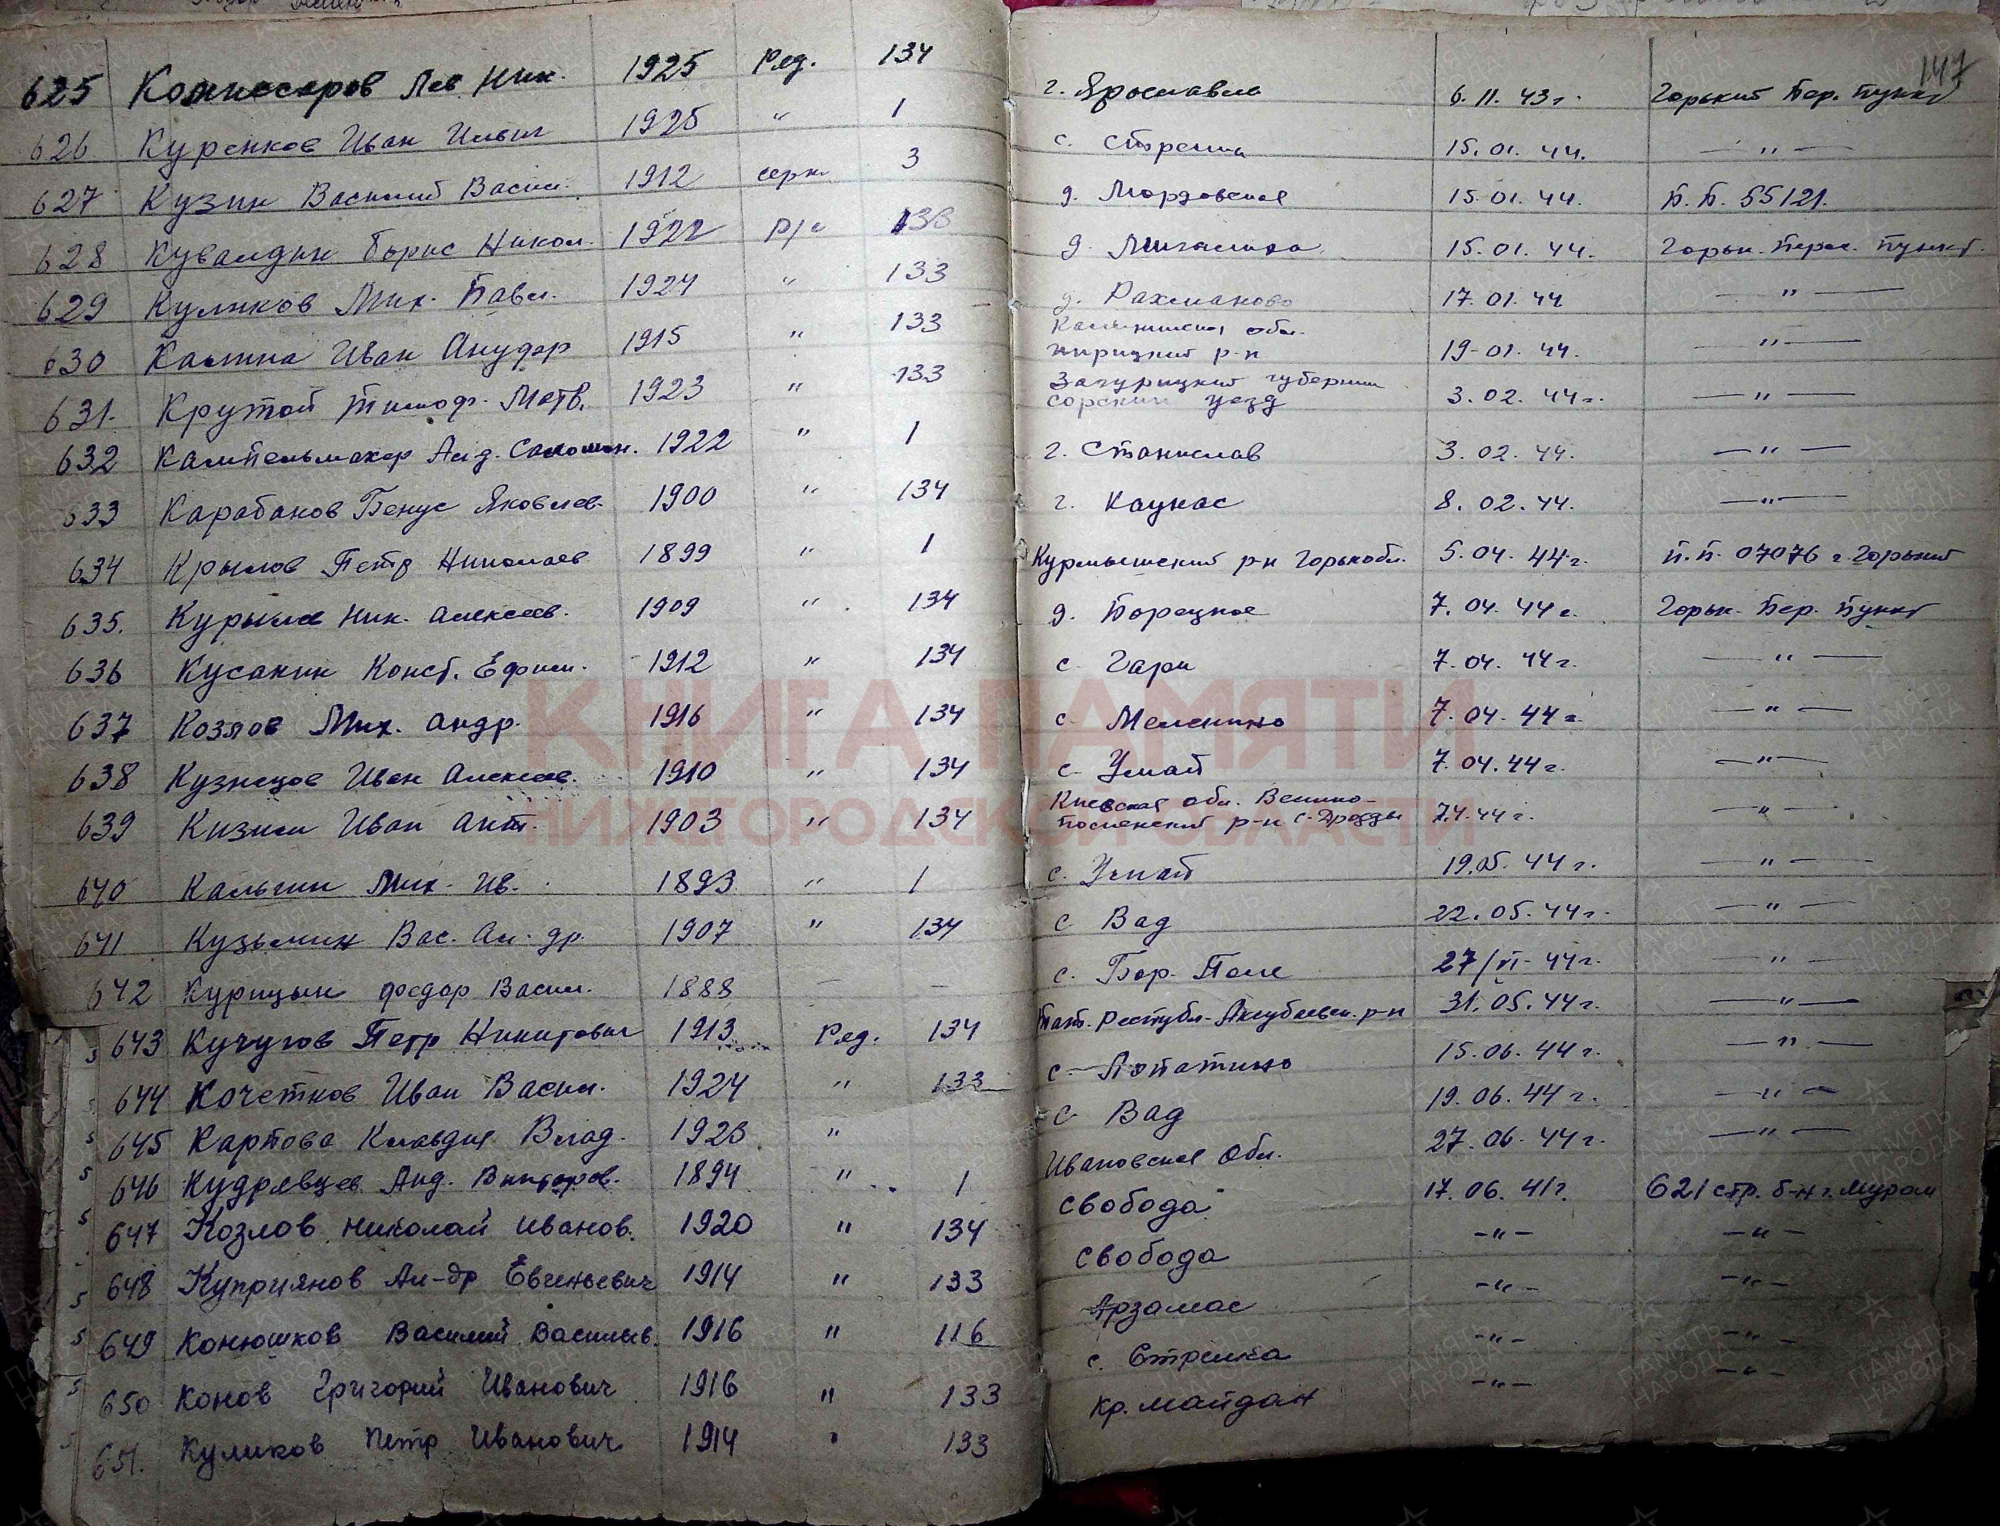 147
625 Комиссаров Лев Ник. 1925 Ряд. 134 г. Ярославль 6.11.43г. Горький Пер. Пункт
626 Куренков Иван Ильич 1925 " 1 с. Стрелка 15.01.44. — " —
627 Кузин Василий Васил. 1912 серж. 3 д. Мордовская 15.01.44. П.П. 55121.
628 Кувалдин Борис Никол. 1922 р/с 133 д. 15.01.44. Горьк. Перес. Пункт.
629 Куликов Мих. Павл. 1924 " 133 д. Рахманово 17.01.44 — " —
630 Калина Иван 1915 " 133 Калининская обл. р-н 19-01.44. — " —
631. Крутой Тимоф. Матв. 1923 " 133 губернии уезд 3.02.44г. — " —
632 Кампельмахер Соломон. 1922 " 1 г. Станислав 3.02.44. — " —
633 Карабанов Яковлев. 1900 " 134 г. Каунас 8.02.44. — " —
634 Крылов Петр Николаев 1899 " 1 Курмышский р-н Горькобл. 5.04.44г. П.П. 07076 г Горький
635. Ник. Алексеев. 1909 " 134 д. Борецкое 7.04.44г. Горьк. Пер. Пункт
636 Кусакин Конст. Ефим. 1912 " 134 с. Гари 7.04.44г. — " —
637 Козлов Мих. Андр. 1916 " 134 с. 7.04.44г. — " —
638 Кузнецов Иван Алексеев. 1910 " 134 с. 7.04.44г. — " —
639 Кизим Иван Ант. 1903 " 134 Киевская обл. р-н с. Дрозды 7.4.44г. — " —
640 Калыгин Мих. Ив. 1893 " 1 с. 19.05.44г. — " —
641 Кузьмин Вас. Ал-др. 1907 " 134 с Вад 22.05.44г. — " —
642 Курицын Федор Васил. 1888 — — с. Бор. Поле 27/VI-44г. — " —
643 Кучугов Петр Никитович 1913 Ряд. 134 Тат. Республ. р-н 31.05.44г. — " —
644 Кочетков Иван Васил. 1924 " 133 с. Лопатино 15.06.44г. — " —
645 Карпова Клавдия Влад. 1923 " с Вад 19.06.44г. — " —
646 Кудрявцев Викторов. 1894 " 1 Ивановская обл. 27.06.44г. — " —
647 Козлов Николай Иванов. 1920 " 134 свобода 17.06.41г. 621 стр. б-н г. Муром
648 Куприянов Ал-др Евгеньевич 1914 " 133 свобода -"- -"-
649 Конюшков Василий Васильев. 1916 " 116 Арзамас -"- -"-
650 Конов Григорий Иванович 1916 " 133 с. Стрелка -"- -"-
651. Куликов Петр Иванович 1914 " 133 Кр. Майдан -"- -"-
КНИГА ПАМЯТИ
НИЖЕГОРОДСКОЙ ОБЛАСТИ
ПАМЯТЬ НАРОДА